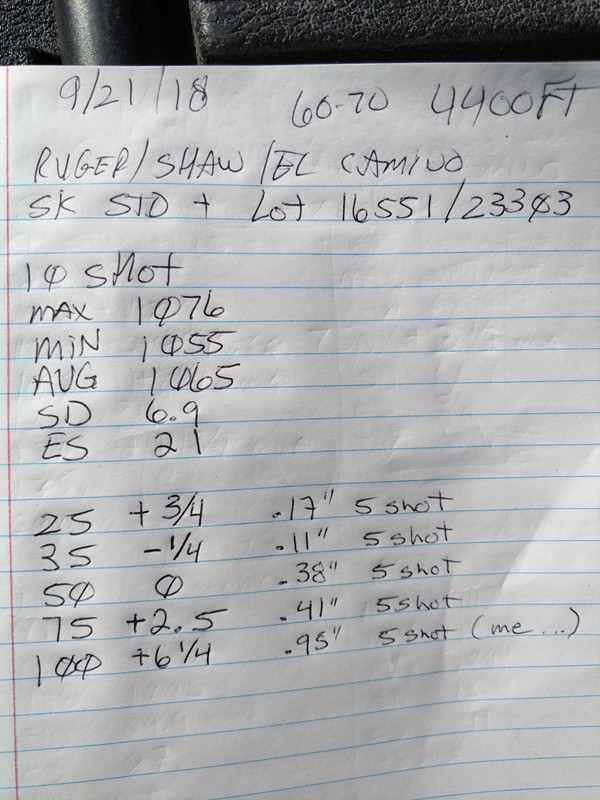 9/21/18 60-70 4400FT
RUGER/SHAW/EL CAMINO
SK STD + Lot 16551/23303
10 SHOT
MAX 1076
MIN 1055
AVG 1065
SD 6.9
ES 21
25 + 3/4 .17" 5 shot
35 - 1/4 .11" 5 shot
50 0 .38" 5 shot
75 +2.5 .41" 5 shot
100 +6 1/4 .95" 5 shot (me...)